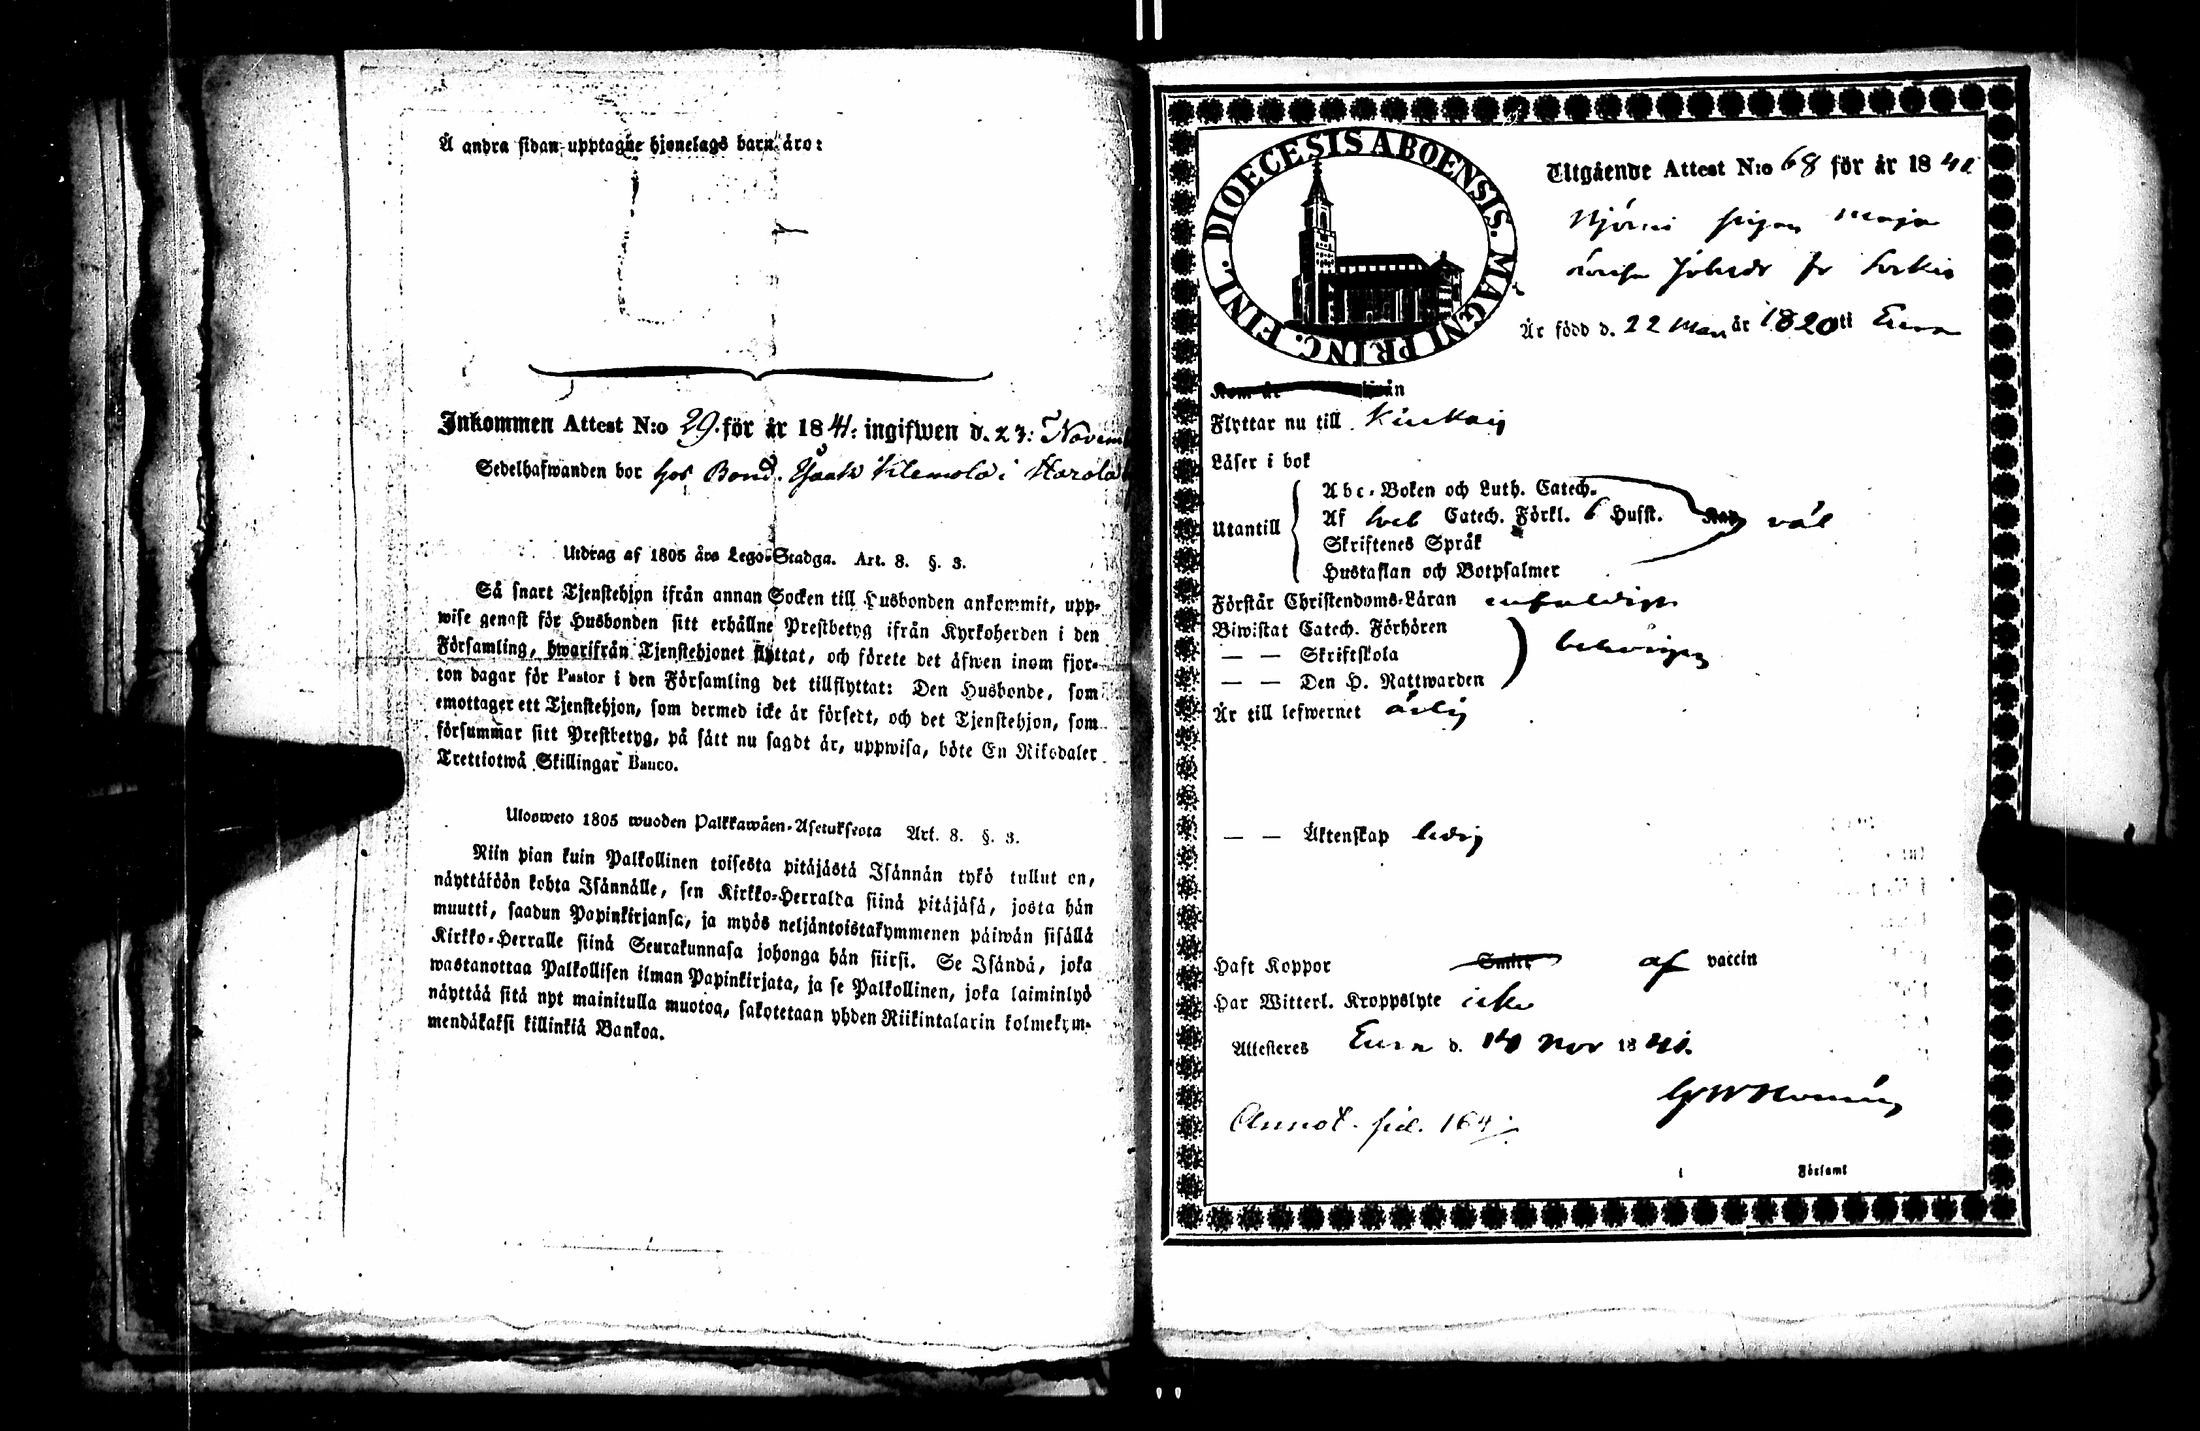 Å andra sidan upptagne hjonelags barn äro:
Inkommen Attest N:o 29. för år 1841: ingifwen d. 23: Novem
Sedelhafwanden bor hos Bond. Isaak Klemola i Harola
Utdrag af 1805 års Lego-Stadga. Art. 8. §. 3.
Så snart Tjenstehjon ifrån annan Socken till Husbonden ankommit, upp-
wise genast för Husbonden sitt erhållne Prestbetyg ifrån Kyrkoherden i den
Församling, hwarifrån Tjenstehjonet flyttat, och förete det äfwen inom fjor-
ton dagar för Pastor i den Församling det tillflyttat: Den Husbonde, som
emottager ett Tjenstehjon, som dermed icke är försedt, och det Tjenstehjon, som
försummar sitt Prestbetyg, på sätt nu sagdt är, uppwisa, böte En Riksdaler
Trettiotwå Skillingar Banco.
Ulosweto 1805 wuoden Palkkawäen-Asetuksesta Art. 8. §. 3.
Niin pian kuin Palkollinen toisesta pitäjästä Isännän tykö tullut on,
näyttäköön kohta Isännälle, sen Kirkko-Herralda siinä pitäjäsä, josta hän
muutti, saadun Papinkirjansa, ja myös neljäntoistakymmenen päiwän sisällä
Kirkko-Herralle siinä Seurakunnasa johonga hän siirsi. Se Isändä, joka
wastanottaa Palkollisen ilman Papinkirjata, ja se Palkollinen, joka laiminlyö
näyttää sitä nyt mainitulla muotoa, sakotetaan yhden Riikintalarin kolmekym-
mendäkaksi killinkiä Bankoa.
DIOECESIS ABOENSIS. MAGNI PRINC. FINL.
Utgående Attest N:o 68 för år 1841
pigan Maja
Är född d. 22 Mars år 1820 ti Eura
Flyttar nu till Kiukais
Läser i bok
Abc-Boken och Luth. Catech.
Utantill Af Sveb Catech. Förkl. 6 Hufst. väl
Skriftenes Språk
Hustaflan och Botpsalmer
Förstår Christendoms-Läran enfaldigt
Biwistat Catech. Förhören
— — Skriftskola behörigen
— — Den H. Nattwarden
Är till lefwernet ärlig
— — Äktenskap ledig
Haft Koppor Smitt af vaccin
Har Witterl. Kroppslyte icke
Attesteres Eura d. 14 Nov 1841.
Annot. sid. 164
i Församl